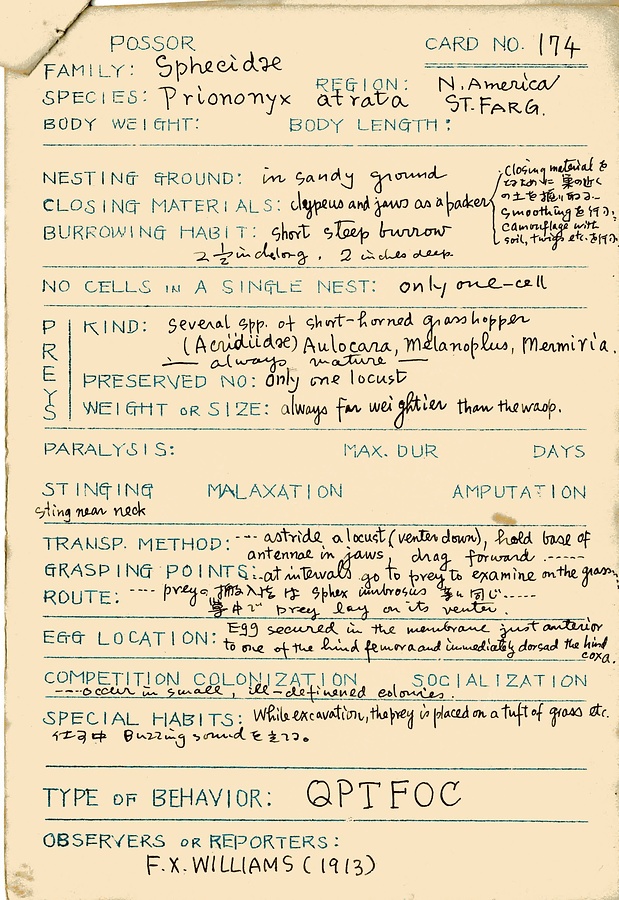 POSSOR CARD NO. 174
FAMILY: Sphecidae
REGION: N. America
SPECIES: Priononyx atrata ST. FARG.
BODY WEIGHT: BODY LENGTH:
NESTING GROUND: in sandy ground
CLOSING MATERIALS: clypeus and jaws as a packer
Closing material を
とるために 巣の近く
の土を掘り取る..
Smoothing を行う.
Camouflage with
soil, twigs etc. を行う.
BURROWING HABIT: short steep burrow
2 1/2 inch long, 2 inches deep
NO CELLS IN A SINGLE NEST: only one-cell
PREYS
KIND: several spp. of short-horned grasshopper
(Acridiidae) Aulocara, Melanoplus, Mermiria.
— always mature —
PRESERVED NO: only one locust
WEIGHT OR SIZE: always far weightier than the wasp.
PARALYSIS: MAX. DUR DAYS
STINGING MALAXATION AMPUTATION
sting near neck
TRANSP. METHOD: --- astride a locust (venter down), hold base of
antennae in jaws, drag forward .-----
GRASPING POINTS: ..at intervals go to prey to examine on the grass,
ROUTE: ---- preyの 搬入法は Sphex umbrosus に同じ-----
巣中で prey lay on its venter.
EGG LOCATION: Egg secured in the membrane just anterior
to one of the hind femora and immediately dorsad the hind
coxa.
COMPETITION COLONIZATION SOCIALIZATION
---- occur in small, ill-definened colonies.
SPECIAL HABITS: While excavation, the prey is placed on a tuft of grass etc.
仕事中 Buzzing sound を立てる。
TYPE OF BEHAVIOR: QPTFOC
OBSERVERS OR REPORTERS:
F.X. WILLIAMS (1913)